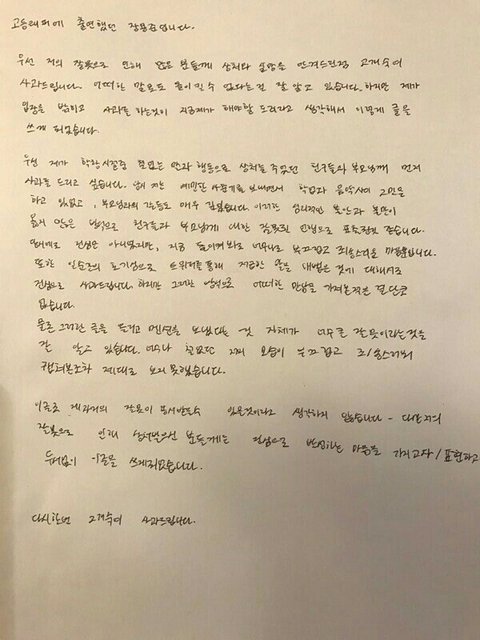 고등래퍼에 출연했던 장용준입니다.
우선 저의 잘못으로 인해 많은 분들께 상처와 실망을 안겨드린점 고개숙여
사과드립니다. 어떠한 말로도 용서될 수 없다는걸 잘 알고 있습니다. 하지만 제가
입장을 밝히고 사과를 하는것이 지금 제가 해야할 도리라고 생각해서 이렇게 글을
쓰게 되었습니다.
우선 제가 학창시절중 철없는 말과 행동으로 상처를 주었던 친구들과 부모님께 먼저
사과를 드리고 싶습니다. 당시 저는 예민한 사춘기를 보내면서 학업과 음악사이 고민을
하고 있었고, 부모님과의 갈등도 매우 깊었습니다. 이러한 심리적인 불안과 불만이
옳지 않은 방식으로 친구들과 부모님께 대한 잘못된 언행으로 표출된것 같습니다.
전심은 아니었지만, 지금 돌이켜 봐도 너무나도 부끄럽고 죄송스러울 따름입니다.
또한 일순간의 호기심으로 트위터를 통해 저급한 말을 내뱉은 것에 대해서도
진심으로 사과드립니다. 하지만 그러한 방식으로 어떠한 만남을 가져본적은 결단코
없습니다.
물론 그러한 글을 쓰고 멘션을 보냈다는 것 자체가 너무 큰 잘못이라는것을
잘 알고 있습니다. 너무나 철없던 저의 모습이 부끄럽고 죄송스러워
캡쳐본조차 제대로 보지 못했습니다.
이글로 제과거의 잘못이 무시될수 있을것이라고 생각하지 않습니다 - 다만 저의
잘못으로 인해 상처받으신 분들께는 진심으로 반성하는 마음을 가지고자/표현하고자
두서없이 이글을 쓰게되었습니다.
다시한번 고개숙여 사과드립니다.